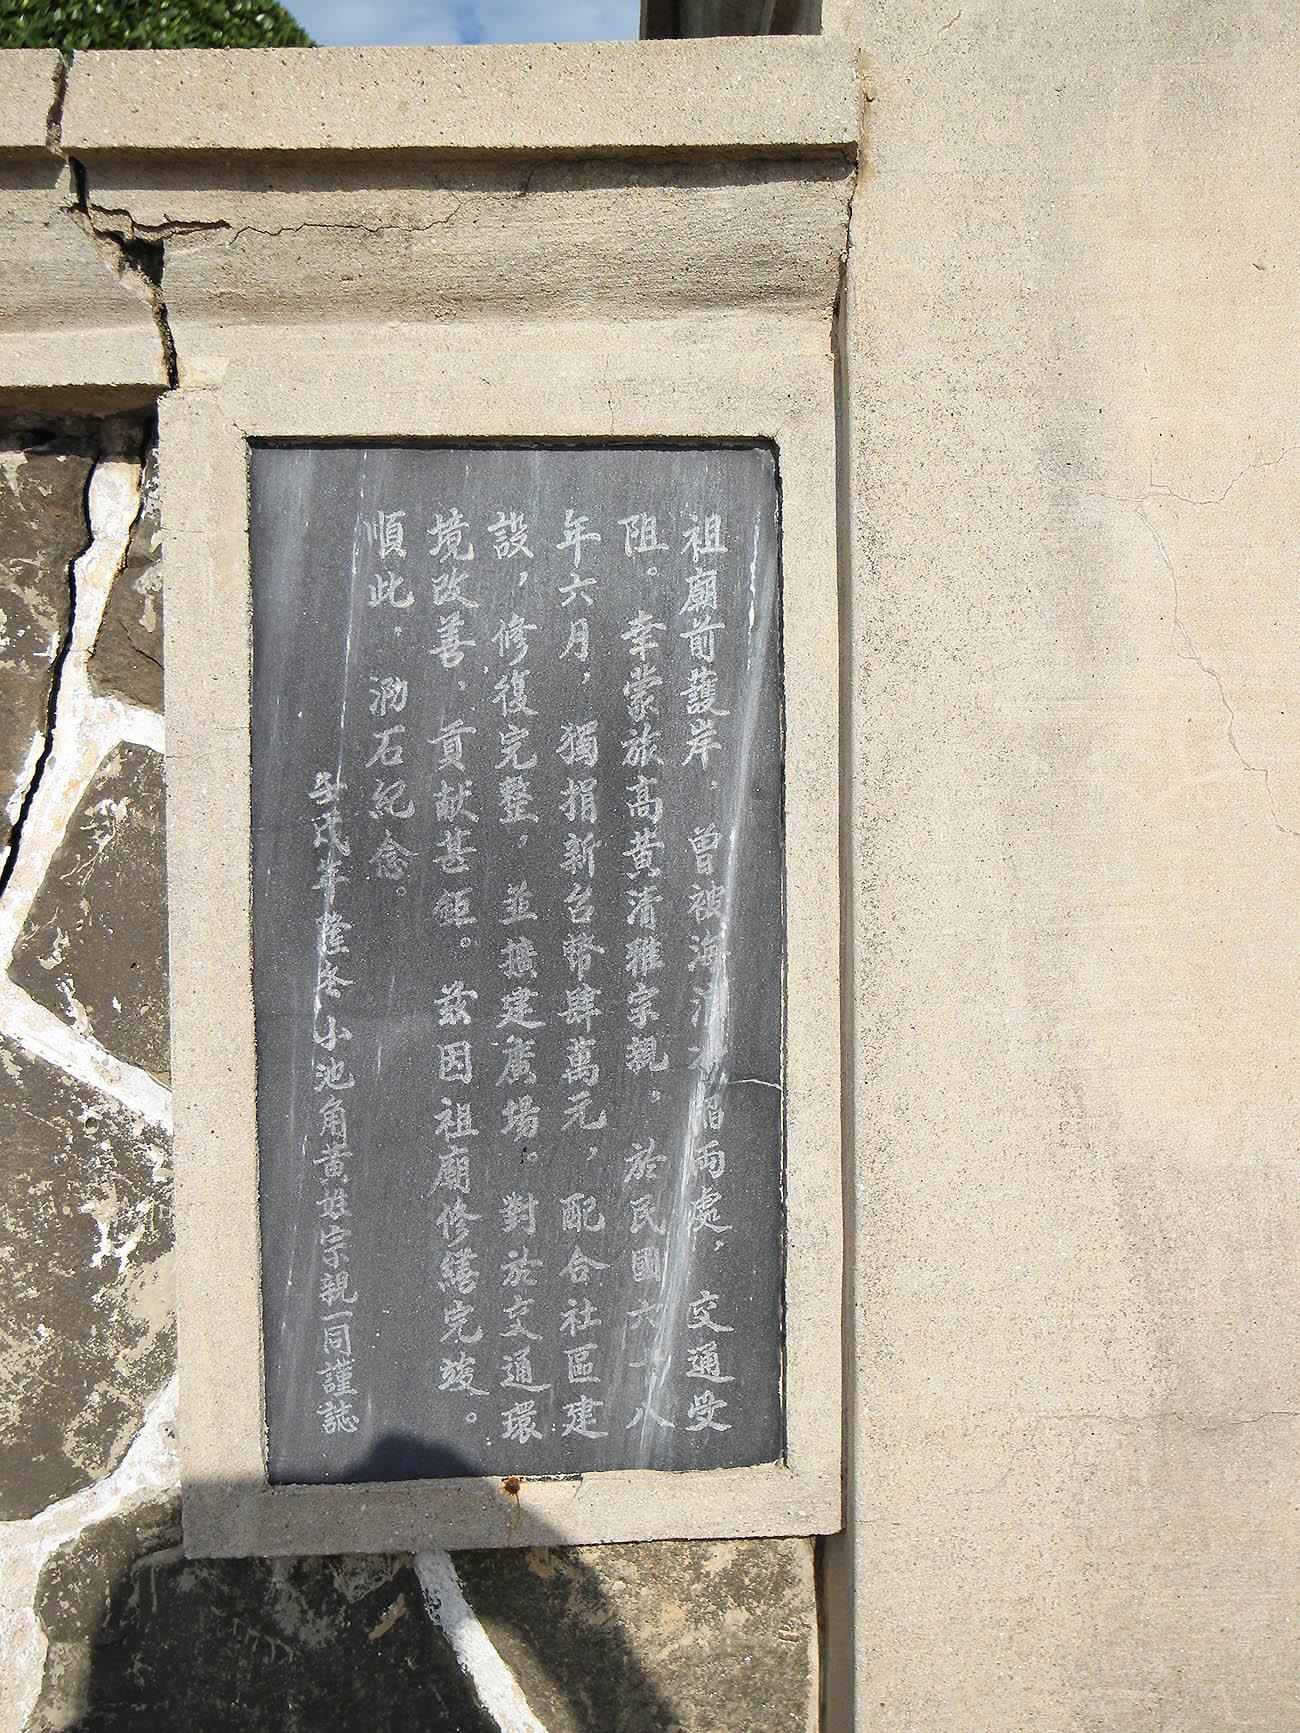 祖廟前護岸，曾被海浪沖塌兩處，交通受
阻。幸蒙旅高黃清雅宗親，於民國六十八
年六月，獨捐新台幣肆萬元，配合社區建
設，修復完整，並擴建廣場。對於交通環
境改善，貢献甚鉅。茲因祖廟修繕完竣。
順此，泐石紀念。
年隆冬小池角黃姓宗親一同謹誌